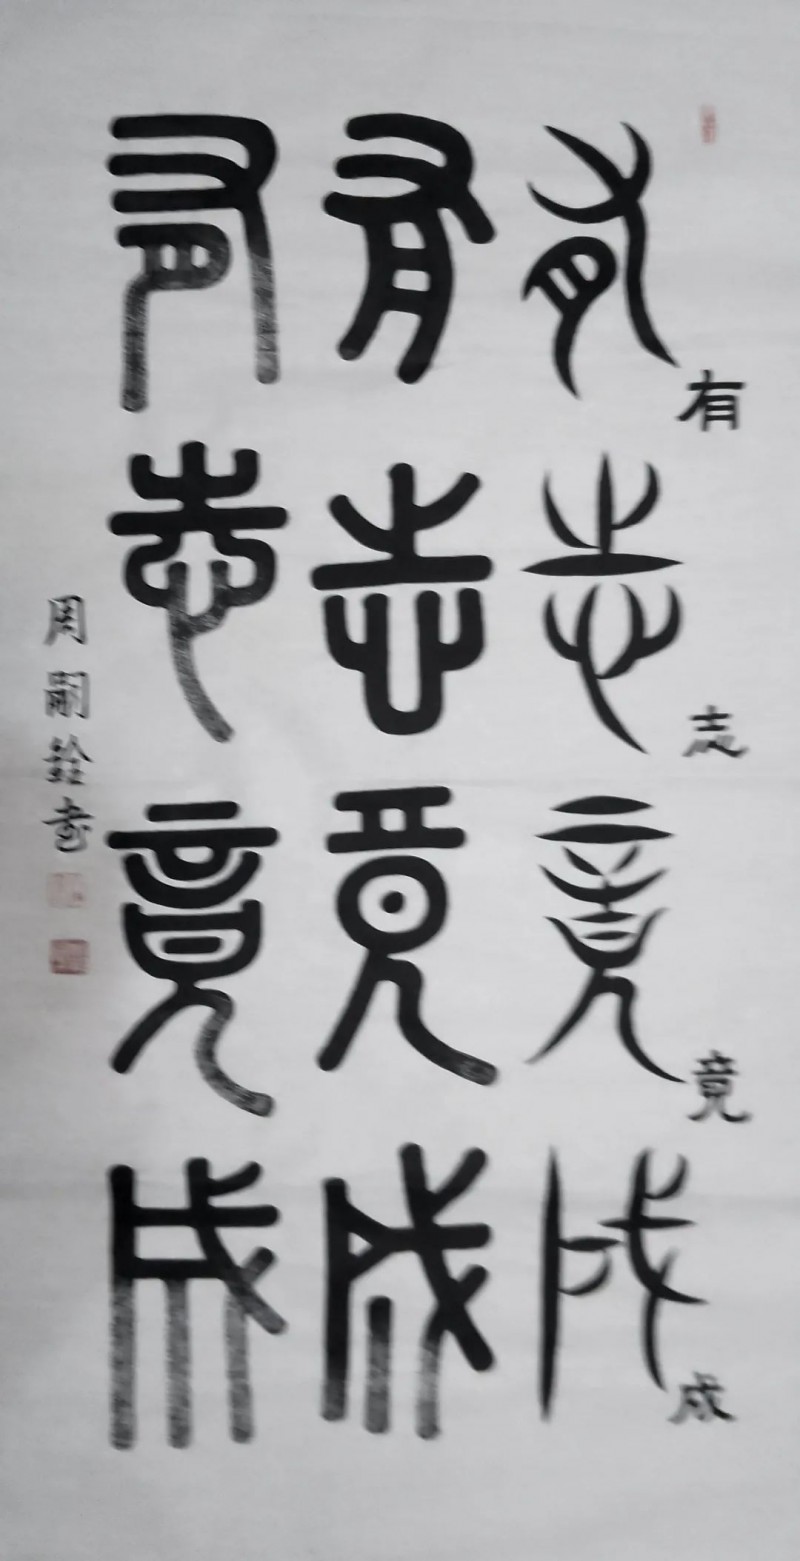 有志竟成
有志竟成
有志竟成
有志竟成
周嗣銓書